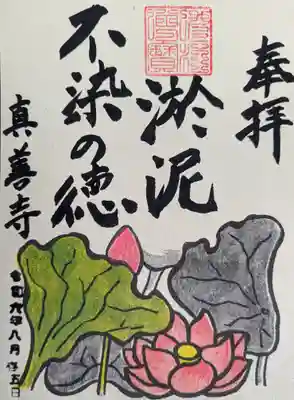 奉拝
淤泥
不染の徳
真善寺
令和六年八月廿五日